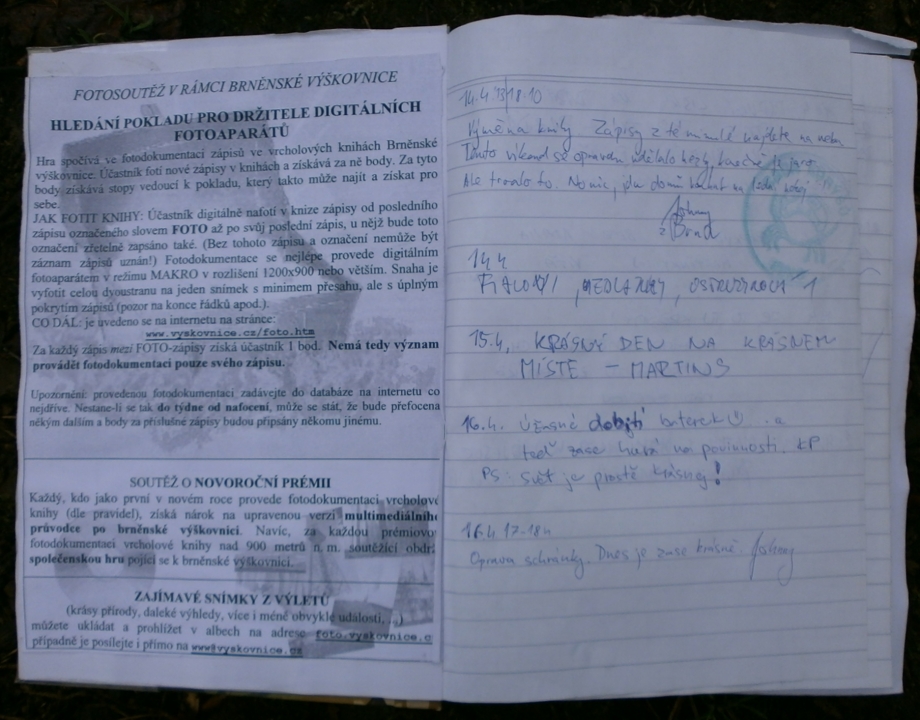 FOTOSOUTĚŽ V RÁMCI BRNĚNSKÉ VÝŠKOVNICE
HLEDÁNÍ POKLADU PRO DRŽITELE DIGITÁLNÍCH
FOTOAPARÁTŮ
Hra spočívá ve fotodokumentaci zápisů ve vrcholových knihách Brněnské
výškovnice. Účastník fotí nové zápisy v knihách a získává za ně body. Za tyto
body získává stopy vedoucí k pokladu, který takto může najít a získat pro
sebe.
JAK FOTIT KNIHY: Účastník digitálně nafotí v knize zápisy od posledního
zápisu označeného slovem FOTO až po svůj poslední zápis, u nějž bude toto
označení zřetelně zapsáno také. (Bez tohoto zápisu a označení nemůže být
záznam zápisů uznán!) Fotodokumentace se nejlépe provede digitálním
fotoaparátem v režimu MAKRO v rozlišení 1200x900 nebo větším. Snaha je
vyfotit celou dvoustranu na jeden snímek s minimem přesahu, ale s úplným
pokrytím zápisů (pozor na konce řádků apod.).
CO DÁL: je uvedeno se na internetu na stránce:
www.vyskovnice.cz/foto.htm
Za každý zápis mezi FOTO-zápisy získá účastník 1 bod. Nemá tedy význam
provádět fotodokumentaci pouze svého zápisu.
Upozornění: provedenou fotodokumentaci zadávejte do databáze na internetu co
nejdříve. Nestane-li se tak do týdne od nafocení, může se stát, že bude přefocena
někým dalším a body za příslušné zápisy budou připsány někomu jinému.
SOUTĚŽ O NOVOROČNÍ PRÉMII
Každý, kdo jako první v novém roce provede fotodokumentaci vrcholové
knihy (dle pravidel), získá nárok na upravenou verzi multimediálního
průvodce po brněnské výškovnici. Navíc, za každou prémiovo
fotodokumentaci vrcholové knihy nad 900 metrů n. m. soutěžící obdr
společenskou hru pojící se k brněnské výškovnici.
ZAJÍMAVÉ SNÍMKY Z VÝLETŮ
(krásy přírody, daleké výhledy, více i méně obvyklé události, ...)
můžete ukládat a prohlížet v albech na adrese foto.vyskovnice.c
případně je posílejte i přímo na www@vyskovnice.cz
14.4 13 18.10
Výměna knihy Zápisy z té minulé najdete na netu.
Tento víkend se opravdu udělalo hezky, konečně je jaro.
Ale trvalo to. No nic, jdu domů
Johny
z Brna
14.4
FIALOVÁ, MEDLÁNKY, OSTRUŽINOVÁ 1
15.4. KRÁSNÝ DEN NA KRÁSNÉM
MÍSTĚ – MARTINS
16.4. Úžasné dobití baterek a
teď zase hurá na povinnosti. KP
PS: Svět je prostě krásnej!
16.4 17.18h
Oprava schránky. Dnes je zase krásně. Johny